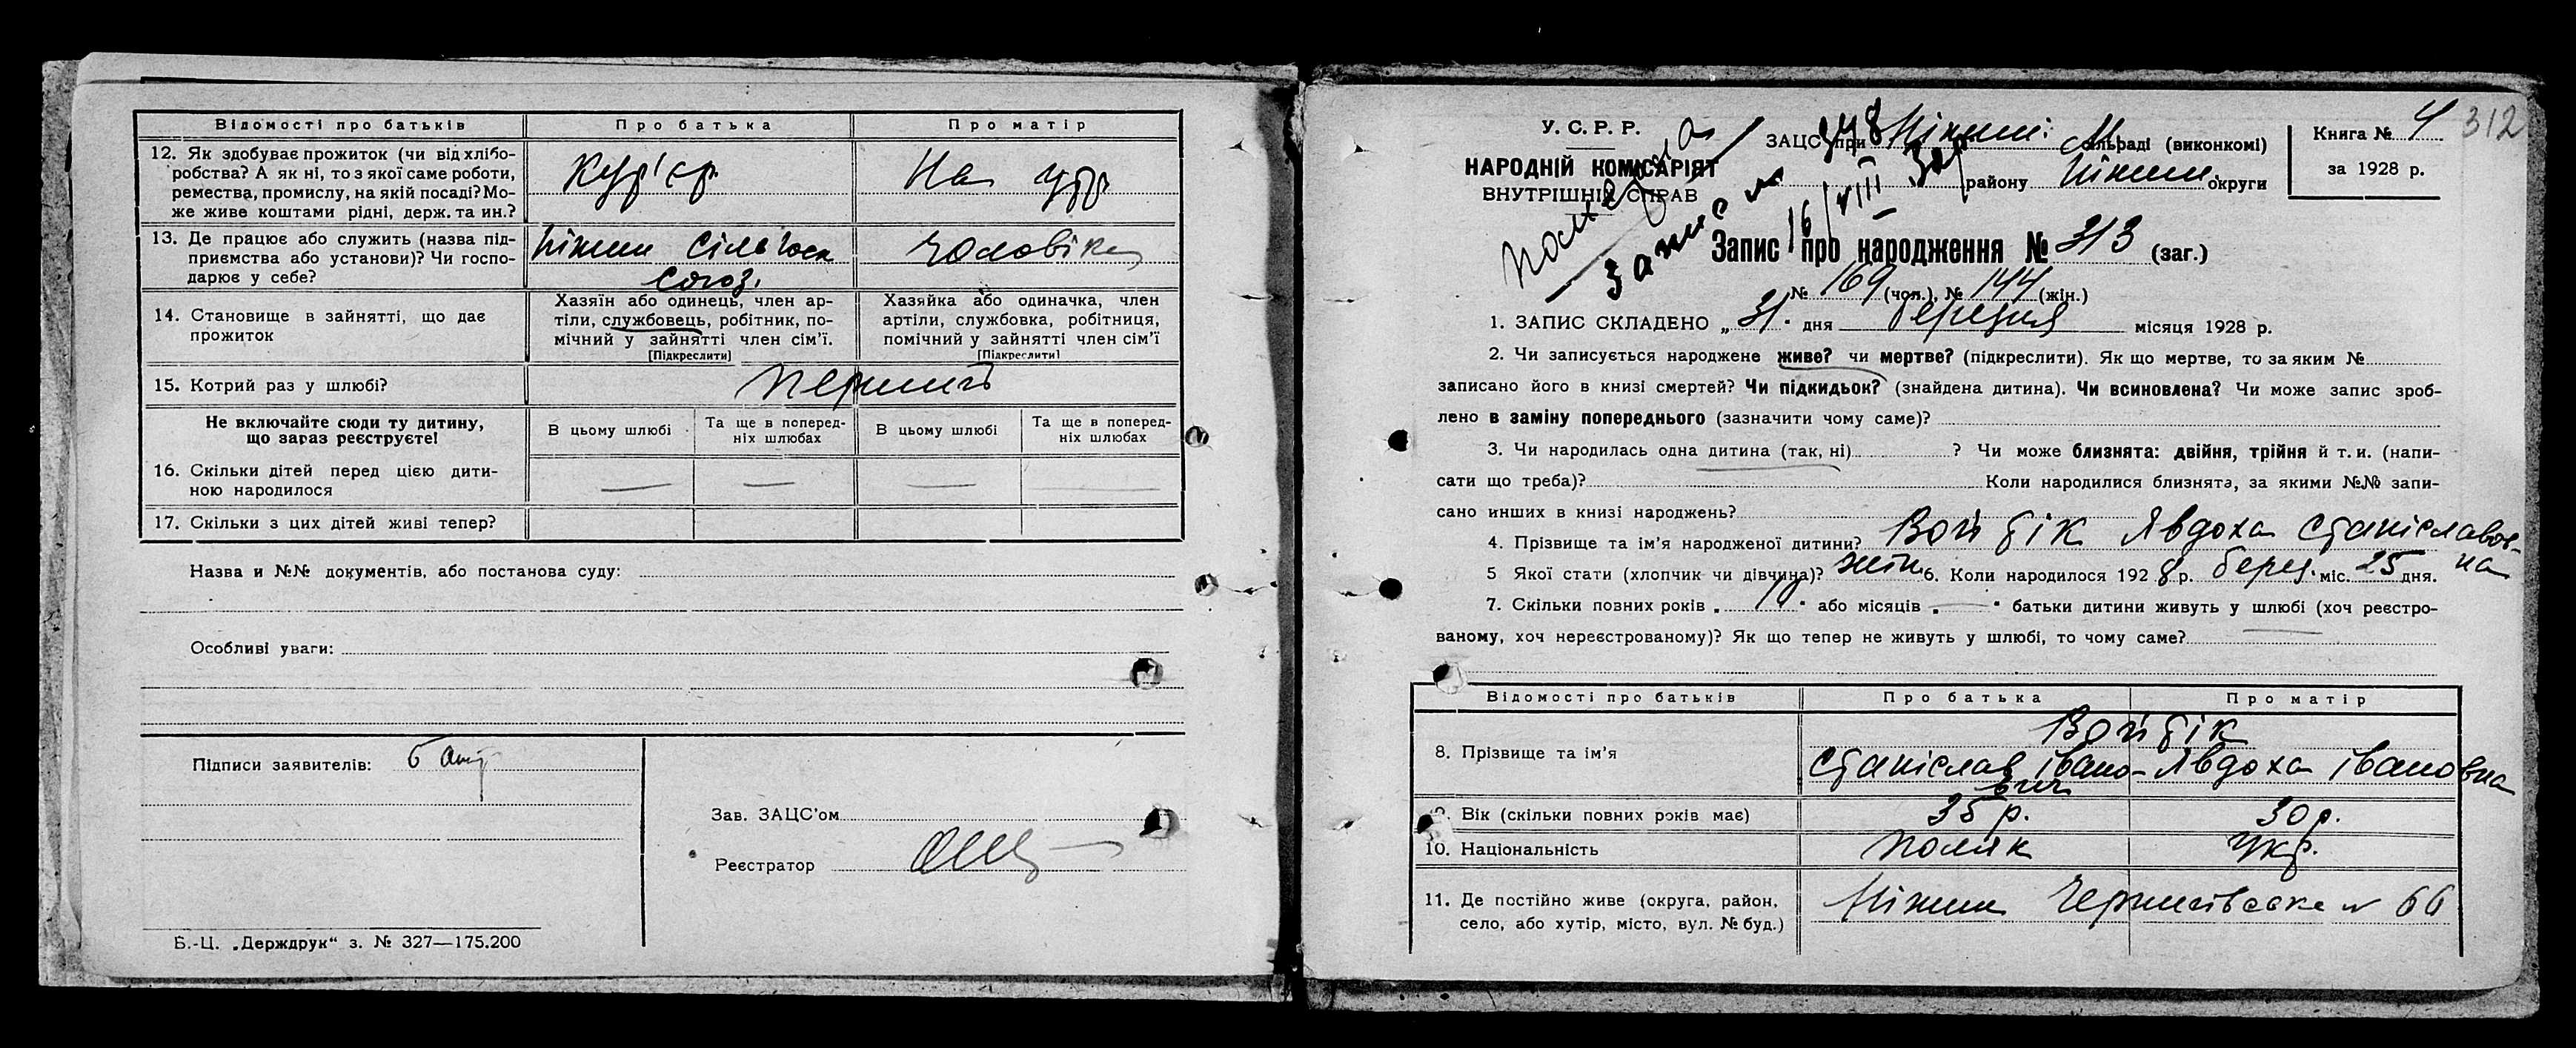 Відомості про батьків Про батька Про матір
12. Як здобуває прожиток (чи від хлібо-
робства? А як ні, то з якої саме роботи,
ремества, промислу, на якій посаді? Мо-
же живе коштами рідні, держ. та ин.?
Кур'єр. На утр
13. Де працює або служить (назва під-
приємства або установи)? Чи госпо-
дарює у себе?
Ніжин Сільгосп чоловіка
союз.
14. Становище в зайнятті, що дає
прожиток
Хазяїн або одинець, член ар-
тіли, службовець, робітник, по-
мічний у зайнятті член сім'ї.
[Підкреслити]
Хазяйка або одиначка, член
артіли, службовка, робітниця,
помічний у зайнятті член сім'ї
[Підкреслити]
15. Котрий раз у шлюбі? перший
Не включайте сюди ту дитину,
що зараз реєструєте!
В цьому шлюбі
Та ще в поперед-
ніх шлюбах
В цьому шлюбі
Та ще в поперед-
ніх шлюбах
16. Скільки дітей перед цією дити-
ною народилося — — — —
17. Скільки з цих дітей живі тепер?
Назва и №№ документів, або постанова суду:
Особливі уваги:
Підписи заявителів:
Зав. ЗАЦС'ом
Реєстратор
Б.-Ц. „Держдрук“ з. № 327—175.200
У. С. Р. Р.
НАРОДНІЙ КОМІСАРІЯТ
ВНУТРІШНІХ СПРАВ
ЗАЦС при Ніжин: М. сільраді (виконкомі)
району Ніжин. округи
Книга № 4
за 1928 р.
312
348
16/VIII
Запис про народження № 313 (заг.)
№ 169 (чол.), № 144 (жін.)
1. ЗАПИС СКЛАДЕНО „ 31 “ дня березня місяця 1928 р.
2. Чи записується народжене живе? чи мертве? (підкреслити). Як що мертве, то за яким №
записано його в книзі смертей? Чи підкидьок? (знайдена дитина). Чи всиновлена? Чи може запис зроб-
лено в заміну попереднього (зазначити чому саме)?
3. Чи народилась одна дитина (так, ні) ? Чи може близнята: двійня, трійня й т. и. (напи-
сати що треба)? Коли народилися близнята, за якими №№ запи-
сано инших в книзі народжень?
4. Прізвище та ім'я народженої дитини? Войтік Явдоха Станіславов-
на
5 Якої стати (хлопчик чи дівчина)? жін. 6. Коли народилося 1928 р. берез. міс. 25 дня.
7. Скільки повних років „ “ або місяців „ — “ батьки дитини живуть у шлюбі (хоч реєстро-
ваному, хоч нереєстрованому)? Як що тепер не живуть у шлюбі, то чому саме? —
Відомості про батьків Про батька Про матір
8. Прізвище та ім'я Войтік
Станіслав Івано- Явдоха Івановна
вич
9. Вік (скільки повних років має) 35 р. 30 р.
10. Національність поляк укр.
11. Де постійно живе (округа, район,
село, або хутір, місто, вул. № буд.)
Ніжин Чернигівська № 66